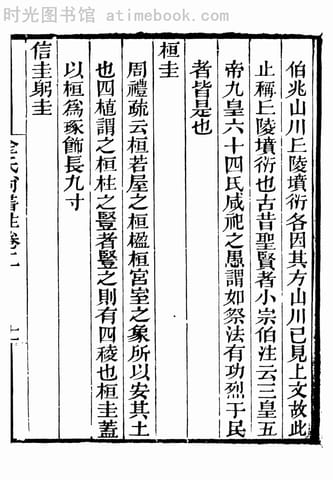 时光图书馆 - atimebook.com
伯兆山川丘陵墳衍各因其方山川已見上文故此
止稱丘陵墳衍也古昔聖賢者小宗伯注云三皇五
帝九皇六十四氏咸祀之愚謂如祭法有功烈于民
者皆是也
桓圭
周禮疏云桓若屋之桓楹桓宮室之象所以安其土
也四植謂之桓柱之豎者豎之則有四稜也桓圭蓋
以桓爲瑑飾長九寸
信圭躬圭